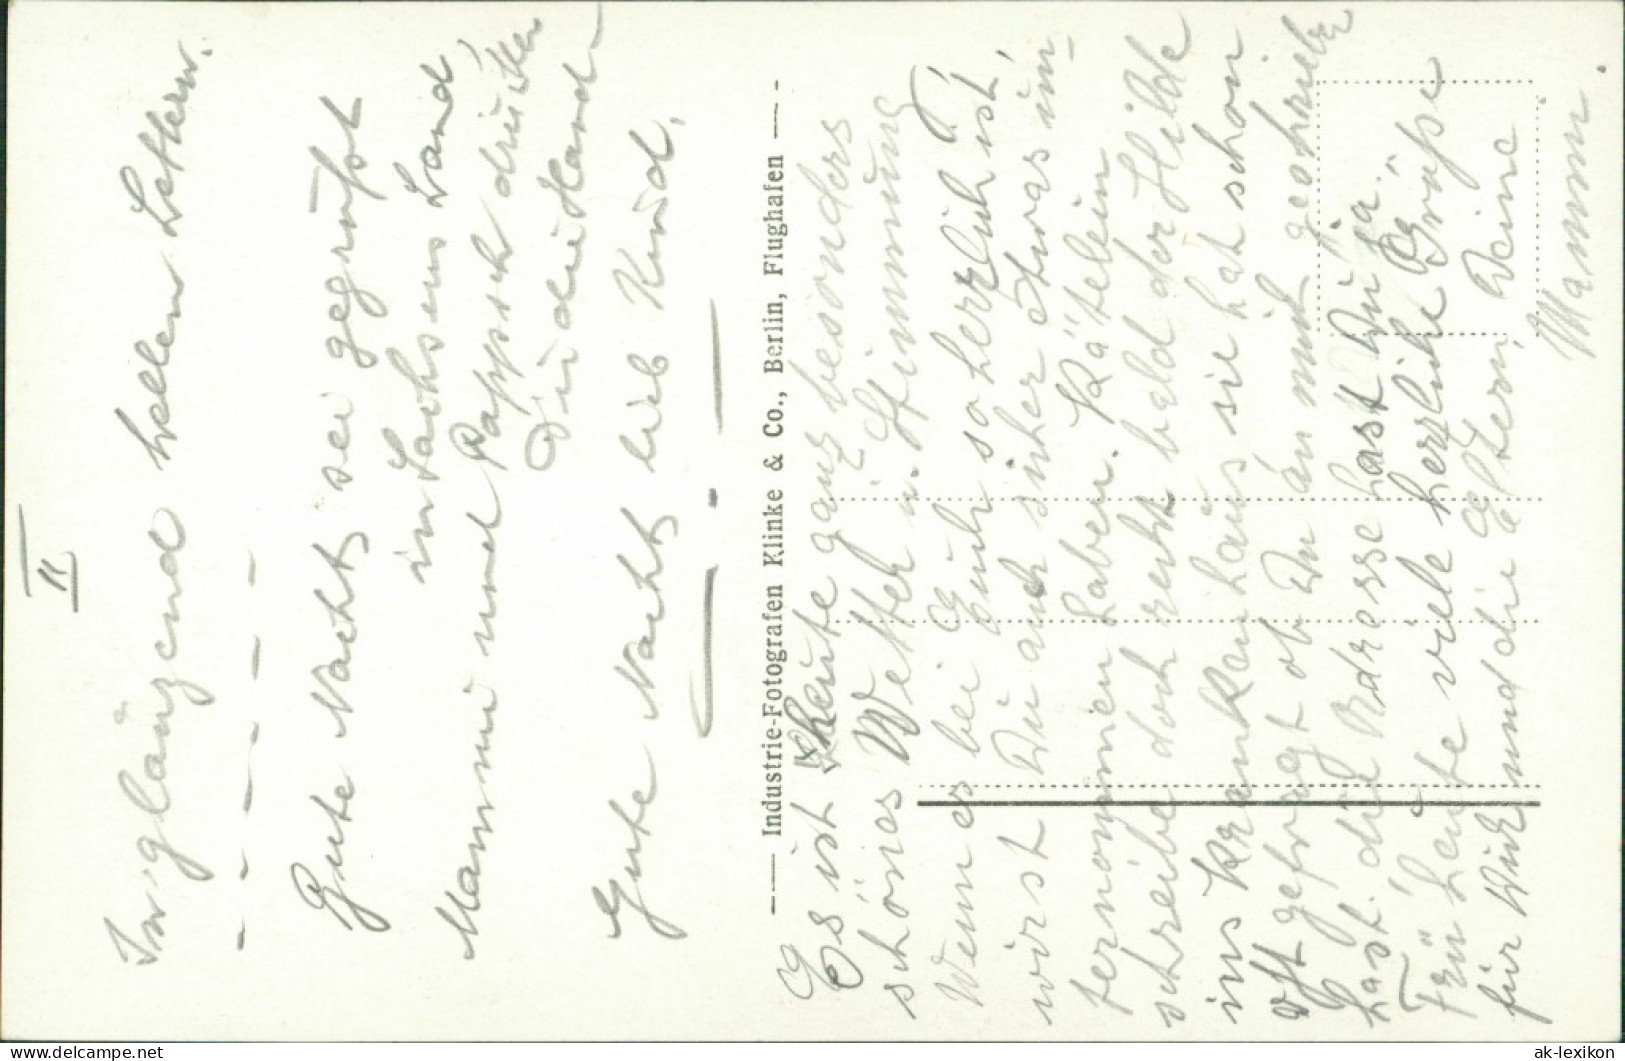 II
In glänzend hellen Lettern.
Gute Nacht sei gegrüßt
in Sachsens Land
Mammi und Pappsch drücken
Dir die Hand
Gute Nacht lieb Kind.
Industrie-Fotografen Klinke & Co., Berlin, Flughafen
Es ist heute ganz besonders
schönes Wetter u. Stimmung
Wenn es bei Euch so herzlich ist,
wirst Du auch sicher etwas un-
ternommen haben. Kätelein
schreibe doch recht bald der Hilde
ins Krankenhaus sie hat schon
oft gefragt ob Du an mich geschrieben
hast. die Adresse hast Du ja.
Für heute viele herzliche Grüße
für Dich und die Eltern, Deine
Mammi.
© ak-ansichtskarten.de
ak-lexikon